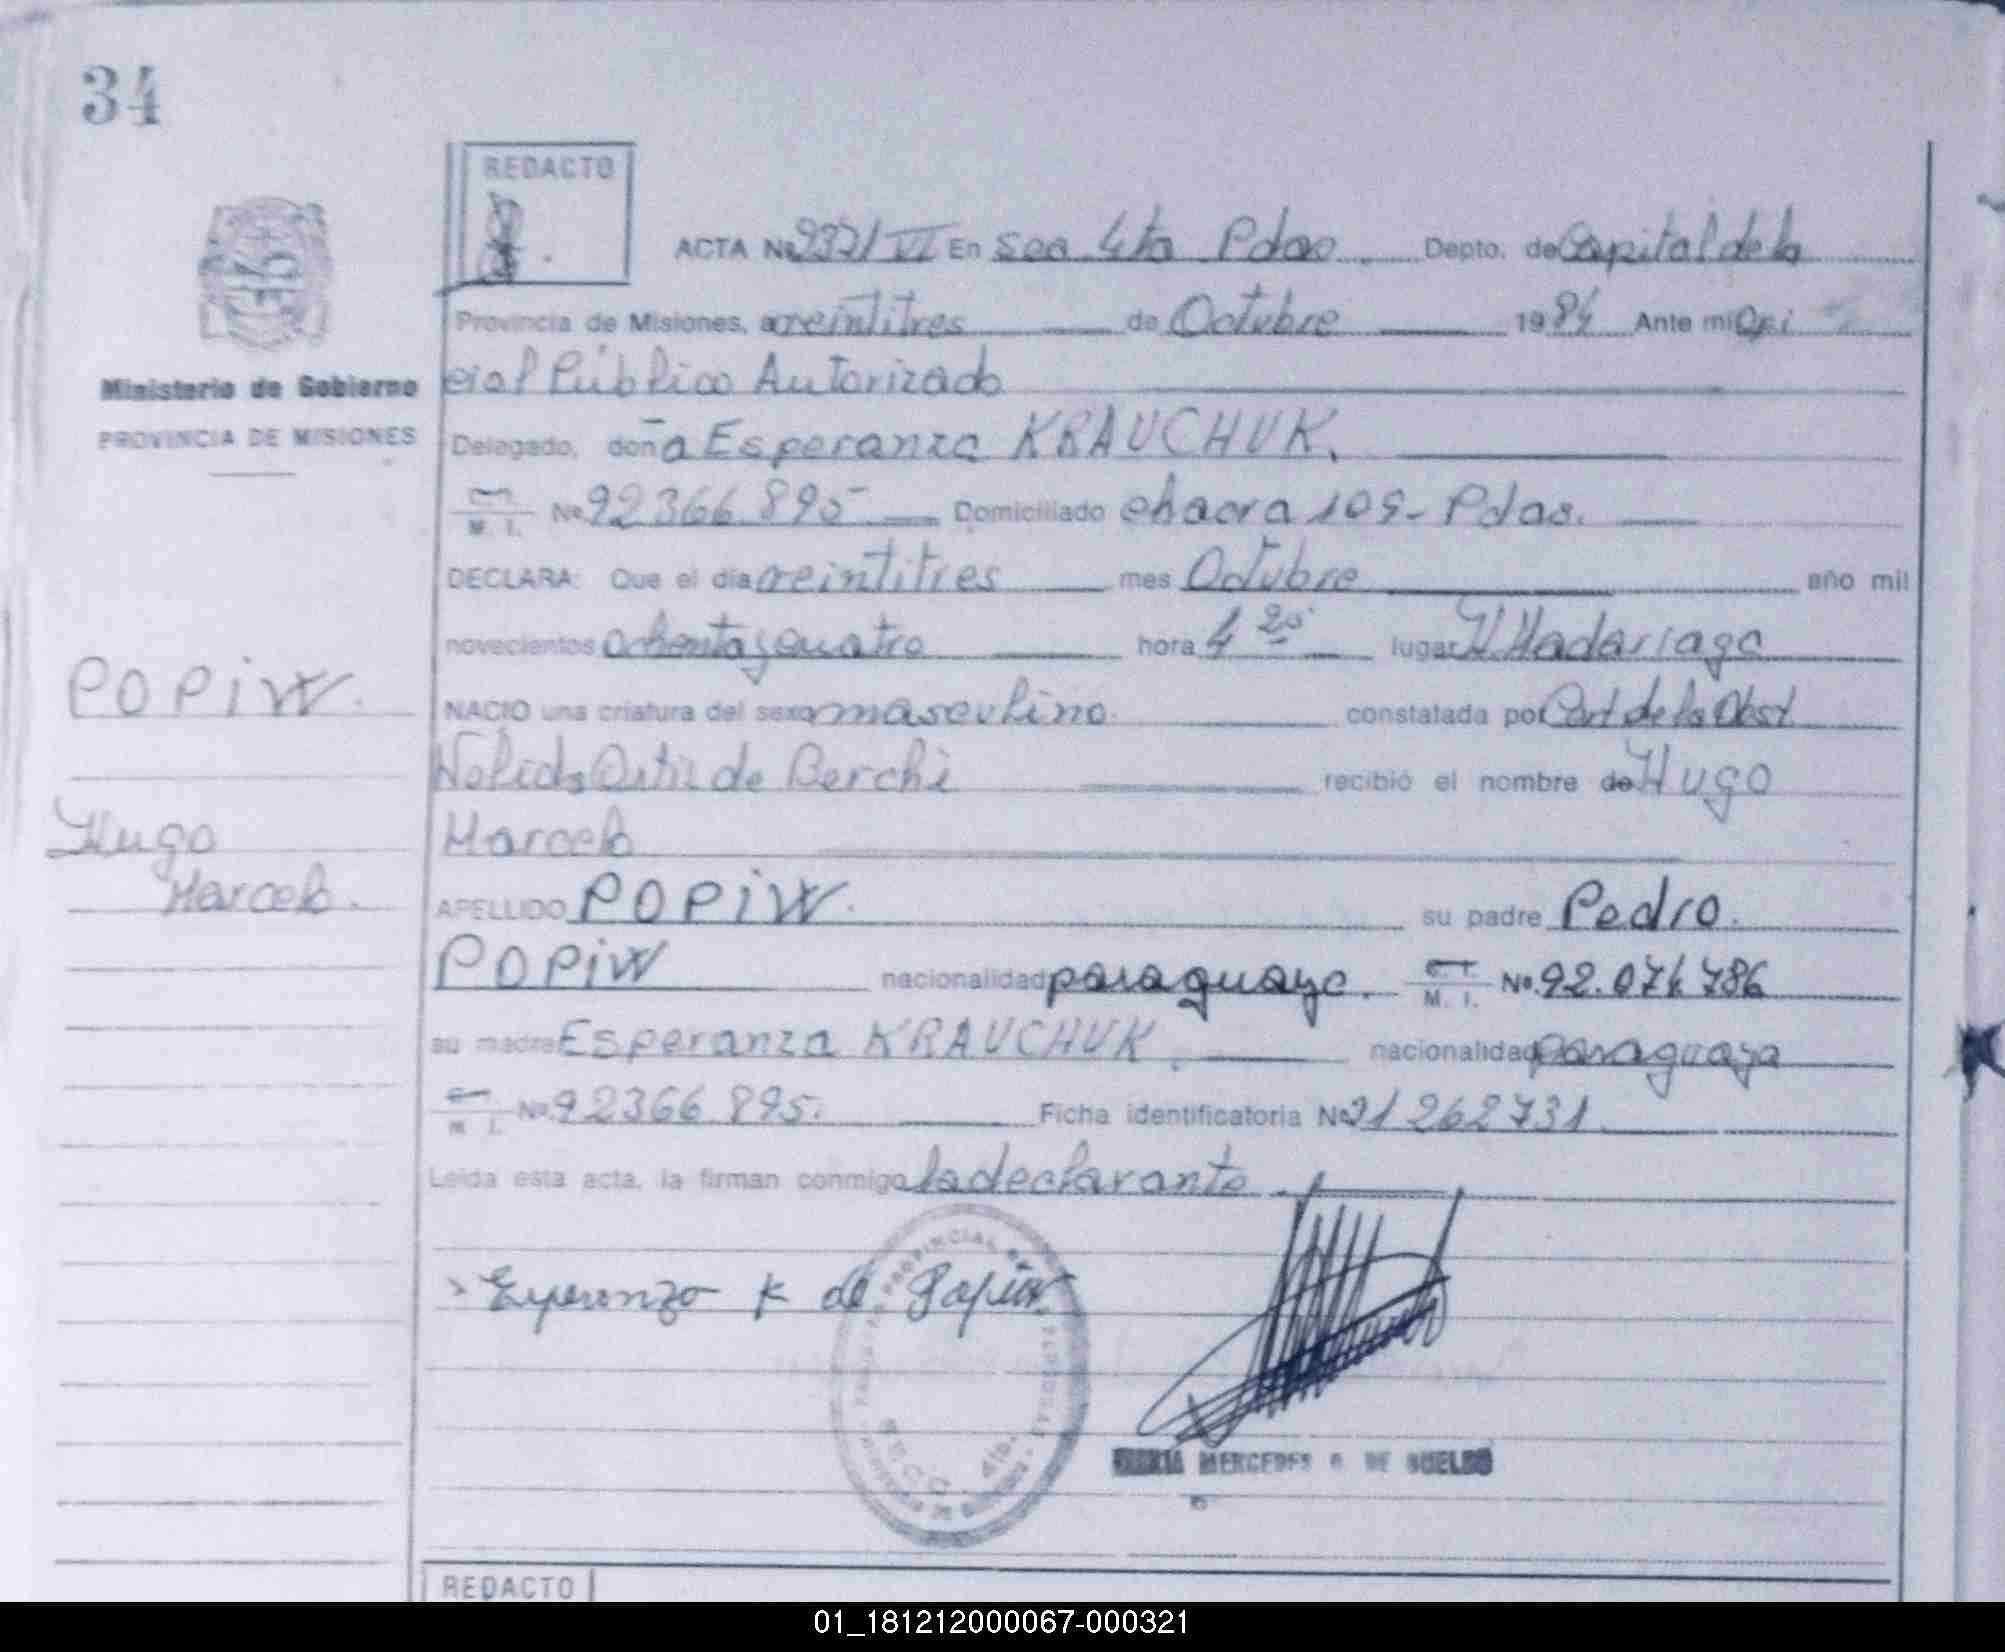 34
REDACTO
ACTA No 2321/VI En sec. 4ta Pdas. Depto. de Capital de la
Provincia de Misiones, a veintitres de Octubre 1984 Ante mi Ofi
cial Público Autorizado
Ministerio de Gobierno
PROVINCIA DE MISIONES
Delegado, doña Esperanza KRAUCHUK.
M. I. No 92366.895 Domiciliado chacra 109- Pdas.
DECLARA: Que el día veintitres mes Octubre año mil
novecientos ochenta y cuatro hora 4 lugar H. Madariaga
POPiW.
NACIO una criatura del sexo masculino constatada por Cert de la Obst.
Nelida Ortiz de Berchi recibió el nombre de Hugo
Hugo
Marcelo
Marcelo.
APELLIDO POPiW. su padre Pedro.
POPiW nacionalidad paraguayo. M. I. No. 92.074.786
su madre Esperanza KRAUCHUK. nacionalidad paraguaya
M. I. No 92366.895. Ficha identificatoria No 21262731
Leída esta acta, la firman conmigo la declarante
Esperanza K de Popiw
PROVINCIAL
MERCEDES DE
REDACTO
01_181212000067-000321